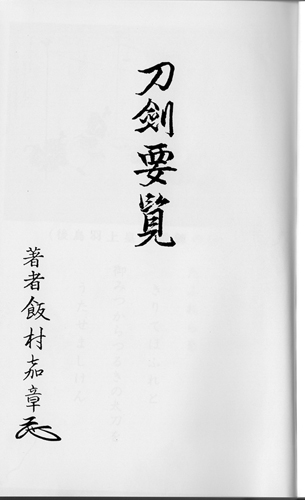 刀劍要覧
著者飯村嘉章